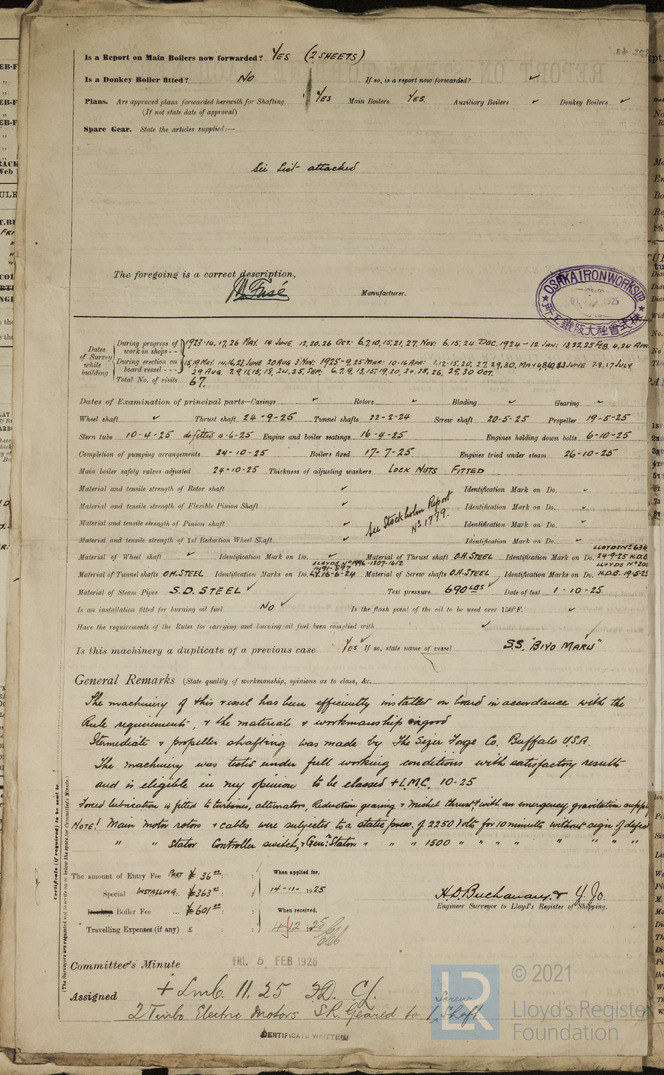 Is a Report on Main Boilers now forwarded? Yes (2 SHEETS)
Is a Donkey Boiler fitted? No If so, is a report now forwarded? ✓
Plans. Are approved plans forwarded herewith for Shafting Yes Main Boilers Yes. Auxiliary Boilers ✓ Donkey Boilers ✓
(If not state date of approval)
Spare Gear. State the articles supplied:—
See List attached
The foregoing is a correct description,
Manufacturer.
OSAKA IRON WORKS LTD
1925
Dates of Survey while building
During progress of work in shops - -
1923-14,17,26 MAY. 14 JUNE 12,20,26 OCT: 6,7,10,15,21,27, NOV. 6,15,24 DEC. 1924-12 JAN;
During erection on board vessel - - -
Total No. of visits 67.
Dates of Examination of principal parts—Casings ✓ Rotors ✓ Blading ✓ Gearing ✓
Wheel shaft ✓ Thrust shaft 24-9-25 Tunnel shafts 22-2-24 Screw shaft 20-5-25 Propeller 19-5-25
Stern tube 10-4-25 do fitted 4-6-25 Engine and boiler seatings 16-4-25 Engines holding down bolts 6-10-25
Completion of pumping arrangements 24-10-25 Boilers fixed 17-7-25 Engines tried under steam 26-10-25
Main boiler safety valves adjusted 24-10-25 Thickness of adjusting washers LOCK NUTS FITTED
Material and tensile strength of Rotor shaft ✓ Identification Mark on Do. ✓
Material and tensile strength of Flexible Pinion Shaft ✓ Identification Mark on Do. ✓
Material and tensile strength of Pinion shaft ✓ Identification Mark on Do. ✓
Material and tensile strength of 1st Reduction Wheel Shaft ✓ Identification Mark on Do. ✓
See Stockholm Report
No 1779.
Material of Wheel shaft ✓ Identification Mark on Do. ✓ Material of Thrust shaft O.H. STEEL Identification Mark on Do. 24-9-25 H.D.B
Material of Tunnel shafts O.H. STEEL Identification Marks on Do. Material of Screw shafts O.H. STEEL Identification Marks on Do. H.D.B. 19-5-25
Material of Steam Pipes S.D. STEEL ✓ Test pressure 690 LBS ✓ Date of test 1-10-25
Is an installation fitted for burning fuel oil No ✓ Is the flash point of the oil to be used over 150°F. ✓
Have the requirements of the Rules for carrying and burning oil fuel been complied with ✓
Is this machinery a duplicate of a previous case Yes ✓ If so, state name of vessel S.S. "BIYO MARU"
General Remarks (State quality of workmanship, opinions as to class, &c.
The machinery of this vessel has been efficiently installed on board in accordance with the
Rule requirements, & the materials & workmanship are good
Intermediate & propeller shafting was made by The Sizer Forge Co. Buffalo U.S.A.
The machinery was tested under full working conditions with satisfactory results
and is eligible in my opinion to be classed + L.M.C. 10-25
Forced lubrication is fitted to turbines, alternators, Reduction gearing & Michel thrust, with an emergency gravitation supply
NOTE! Main Motor rotors & cables were subjected to a static press. of 2250 Volts for 10 minutes without sign of defect
" " Stator Controller switch, & Gen: Stators " " " 1500 " " " " " "
Certificate (if required) to be sent to
(The Surveyors are requested not to write on or below the space for Committee's Minute.)
The amount of Entry Fee PART ¥ 36.00 : When applied for,
Special INSTALLING. ¥363.00 : 14-11- 1925
Boiler Fee ... ¥601.00 : When received,
Travelling Expenses (if any) £ : 4.12.25
H.D. Buchanan & Y. Jo.
Engineer Surveyor to Lloyd's Register of Shipping.
Committee's Minute FRI. 5 FEB 1926
Assigned + LMC. 11.25 F.D. C.L.
2 Turbo Electric Motors S.R. Geared to 1 Screw Shaft
CERTIFICATE WRITTEN
LR
© 2021
Lloyd's Register
Foundation